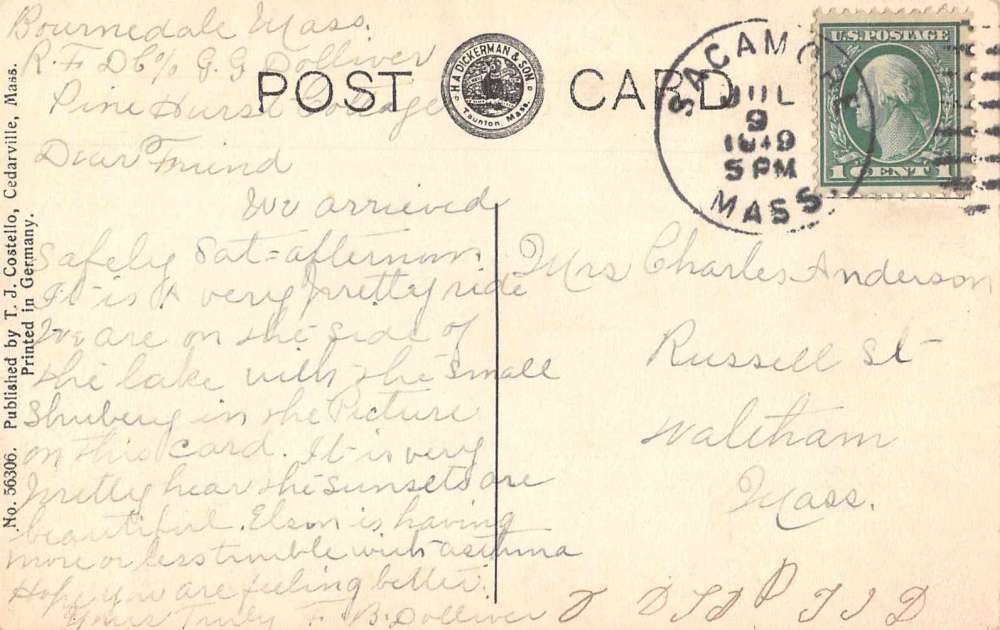 Bournedale Mass.
R.F.D c/o G.G Dolliver
Pine Hurst Cottage
Dear Friend
We arrieved
Safely Sat=afternoon.
It is A very pretty ride
We are on the side of
the lake with the small
Shubery in the Picture
on this card. It is very
pretty hear the sunsets are
beautiful. Elson is having
more or less trouble with asthma
Hope you are feeling better.
Yours Truly F. B. Dolliver
POST CARD
H.A. DICKERMAN & SON
Taunton, Mass.
SAGAMORE
JUL
9
1919
5 PM
MASS.
U.S. POSTAGE
1 CENT 1
Mrs Charles Anderson
Russell St
Waltham
Mass.
No. 56306. Published by T. J. Costello, Cedarville, Mass.
Printed in Germany.